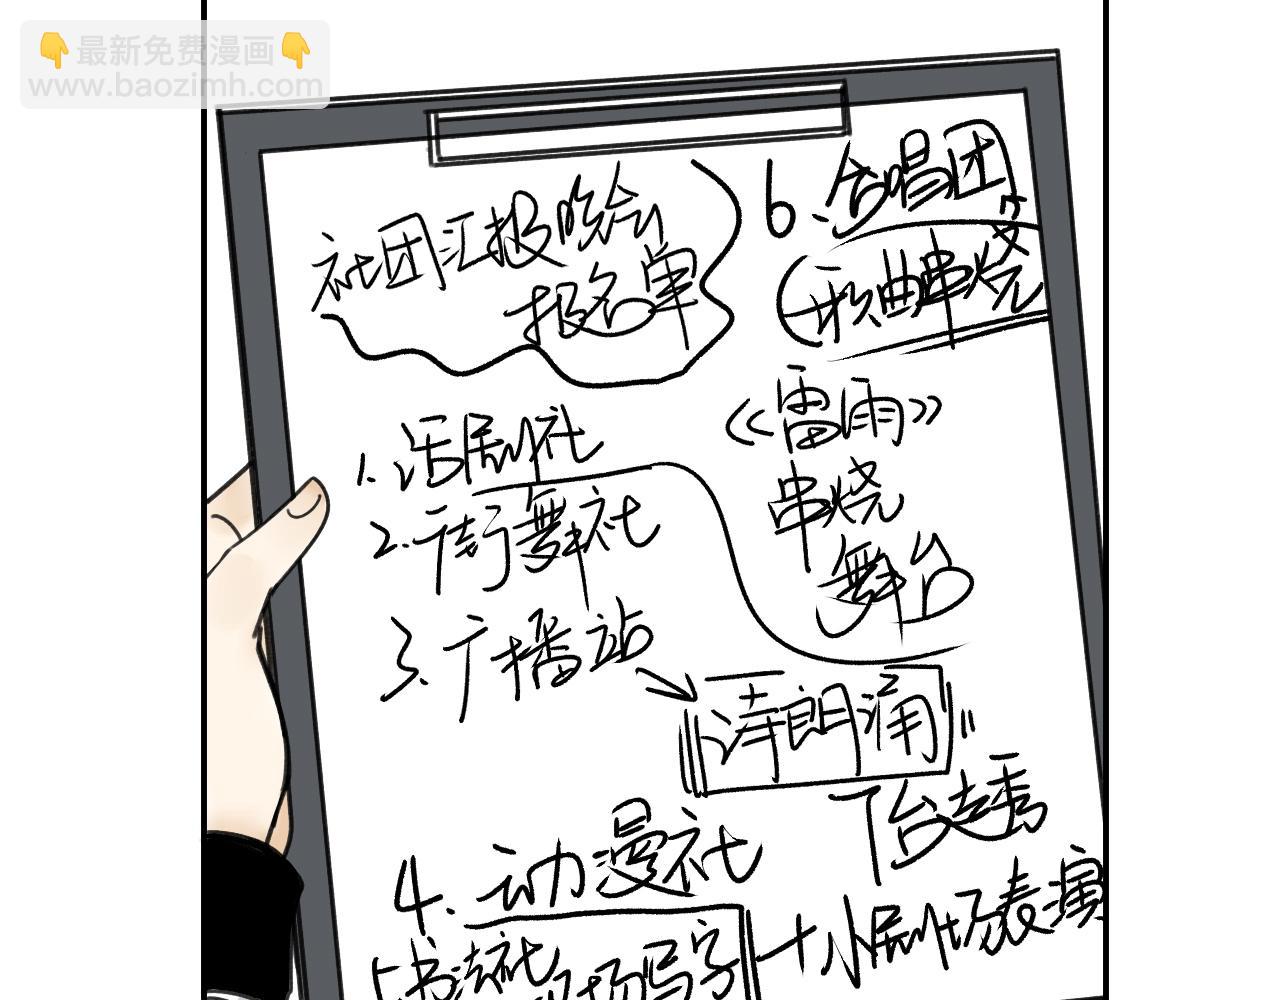 👇最新免费漫画👇
www.baozimh.com
社团汇报晚会
报名单
1.话剧社
2.街舞社
3.广播站
诗朗涌
4.动漫社
T台走秀
+小剧场表演
5.书法社
现场写字
6.合唱团
(歌曲串烧
《雷雨》
串烧
舞台